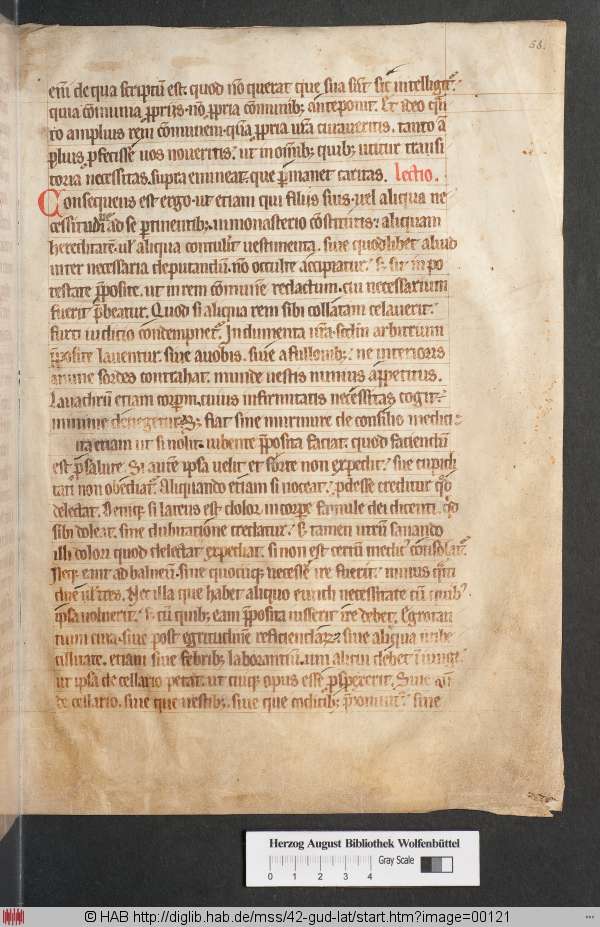 58.
em̅ de qua scriptu̅ est. quod no̅ querat que sua su̅t. sic intelligit᷑.
quia co̅munia propriis. no̅ propria co̅munib; anteponit. Et ideo qua̅
to amplius rem co̅munem. qua̅ propria ur̅a curaueritis. tanto a̅
plius profecisse uos noueritis. ut in omnib; quib; utitur transi
toria necessitas. supra emineat. que permanet caritas. Lectio.
Consequens est ergo. ut etiam qui filiis suis. uel aliqua ne
cessitudine ad se pertinentib; in monasterio co̅stitutis. aliquam
hereditate̅. ul̅ aliqua contulit uestimenta. siue quodlibet aliud
inter necessaria deputandu̅. no̅ occulte accipiatur. s; sit in po
testate p̅posite. ut in rem co̅mune̅ redactum. cui necessarium
fuerit p̅beatur. Quod si aliqua rem sibi collatam celauerit.
furti iudicio condempnet᷑. Indumenta ur̅a. scd̅m arbitrium
p̅posite lauentur. siue auobis. siue a fullonib; ne interioris
anime sordes contrahat. munde uestis nimius appetitus.
Lauachru̅ etiam corporum. cuius infirmitatis necessitas cogit.
minime denegetur. S; fiat sine murmure de consilio medici
ita etiam ut si nolit. iubente p̅posita faciat. quod faciendu̅
est pro salute. Si aute̅ ipsa uelit. et forte non expedit. sue cupidi
tati non obediat᷑. Aliquando etiam si noceat. prodesse creditur quod
delectat. Deniq; si latens est dolor in corpore famule dei dicenti. quod
sibi doleat. sine dubitatione credatur. s; tamen utru̅ sanando
illi dolori quod delectat expediat. si non est certu̅ medic᷒ consulat᷑.
Neq; eant ad balneu̅. siue quocu̅q; necesse ire fuerit. minus qua̅
due ul̅ tres. Nec illa que habet aliquo eundi necessitate̅ cu̅ quib᷒
ipsa uoluerit. s; cu̅ quib; eam p̅posita iusserit ire debet. Egrotan
tium cura. siue post egritudine̅ reficiendar̅. siue aliqua inbe
cillitate. etiam siue febrib; laborantiu̅. uni alicui debet iniungi.
ut ipsa de cellario petat. ut cuiq; opus esse prospexerit. Siue aute̅
de cellario. siue que uestib;. siue que codicib; p̅ponunt᷑. sine
Herzog August Bibliothek Wolfenbüttel
Gray Scale
0 1 2 3 4
© HAB http://diglib.hab.de/mss/42-gud-lat/start.htm?image=00121